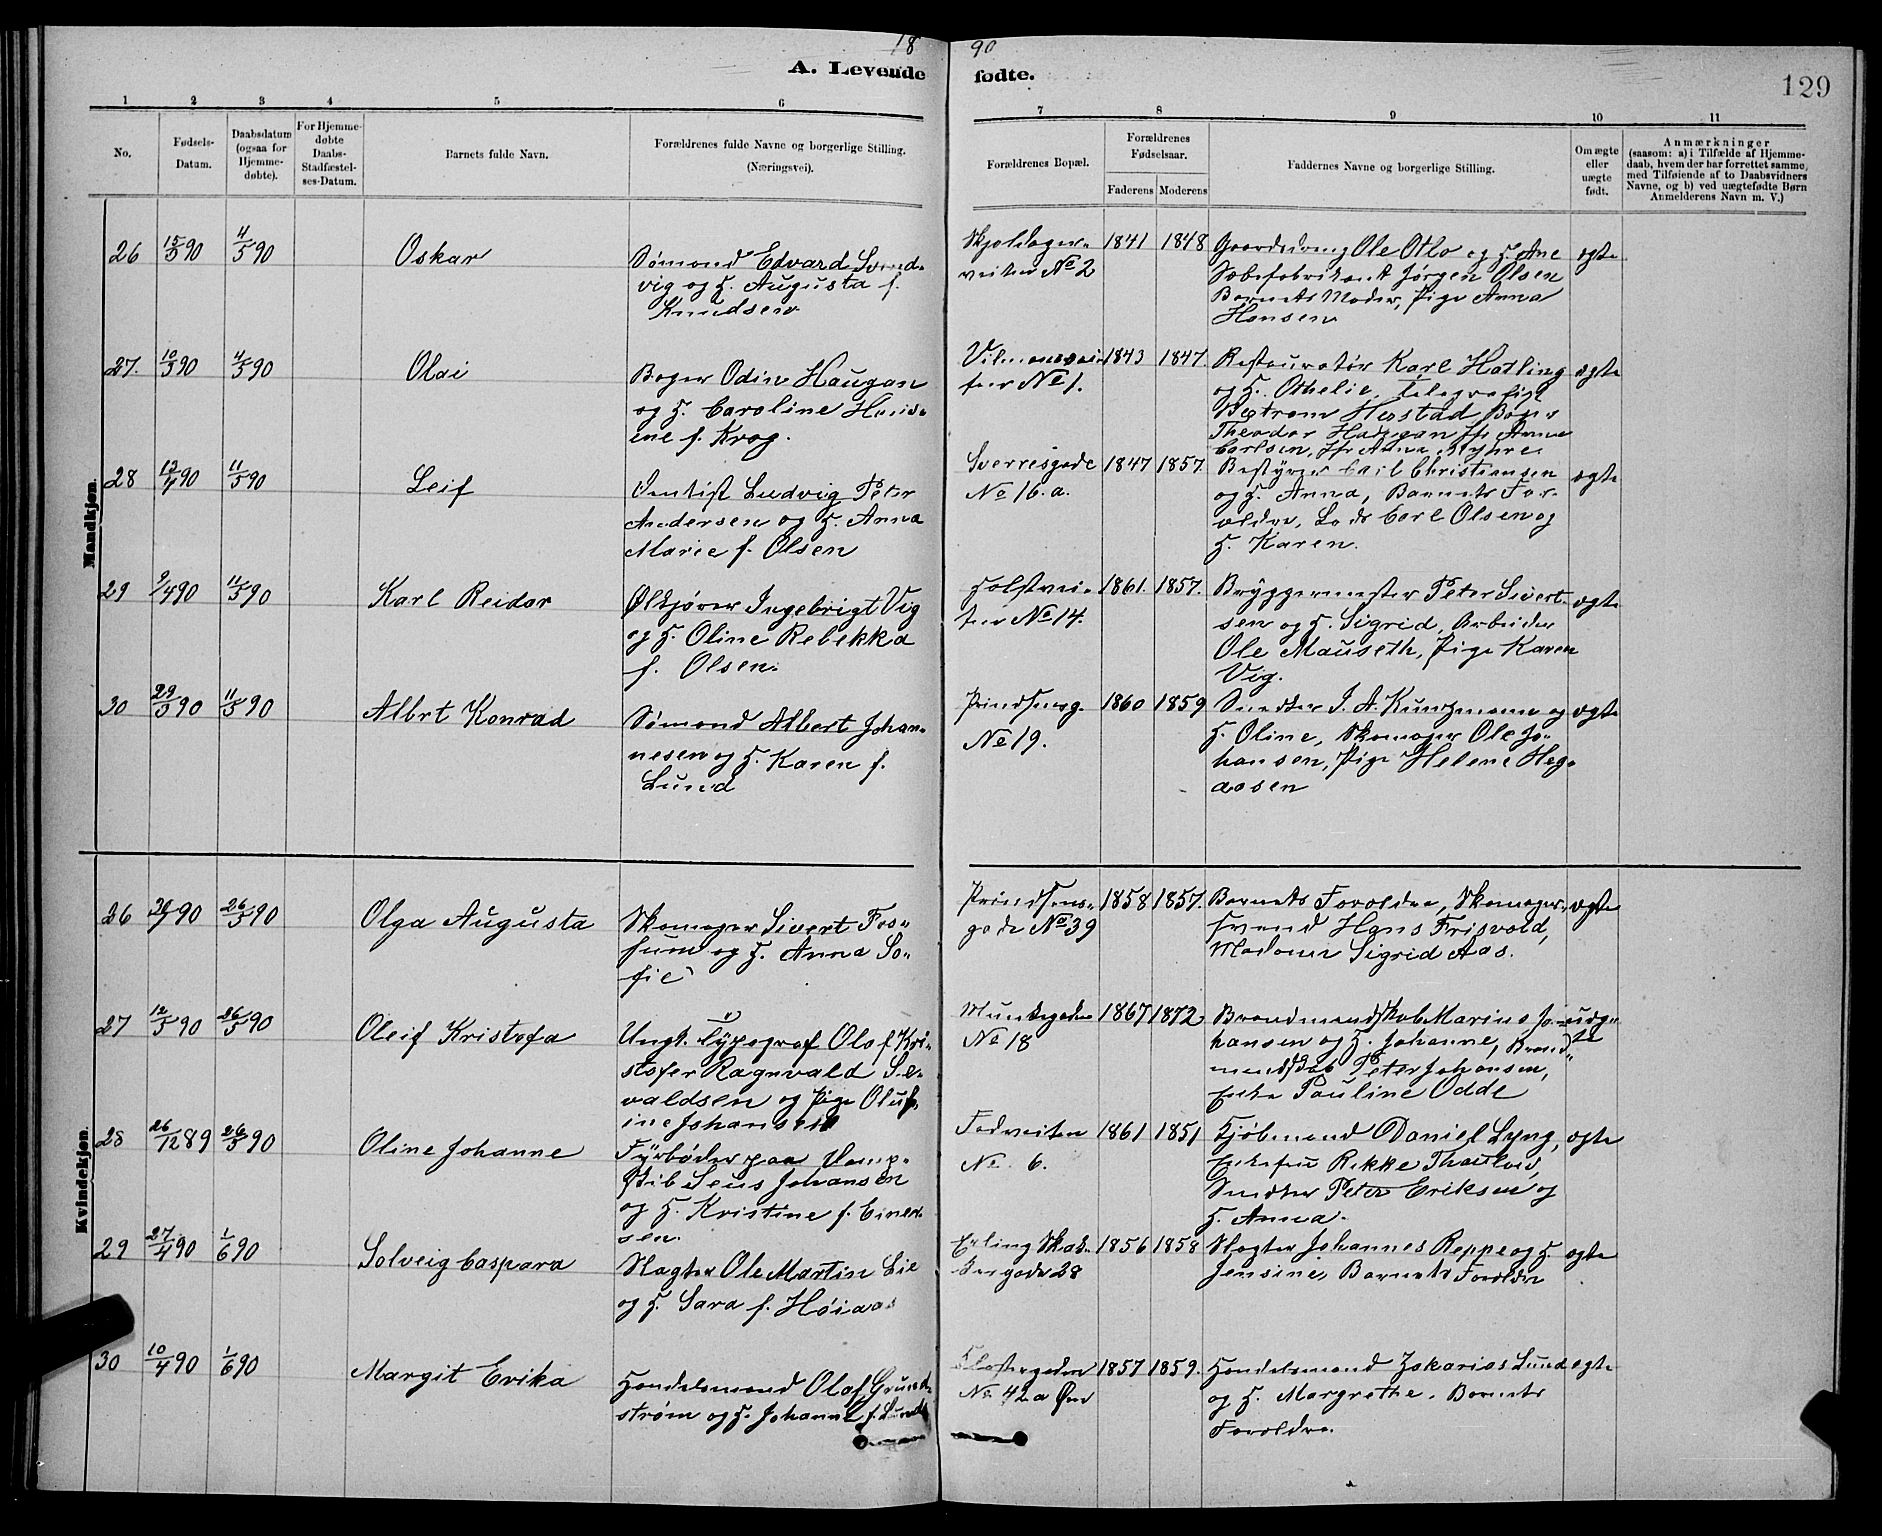 18 90
A. Levende fødte.
129
1 2 3 4 5 6 7 8 9 10 11
No.
Fødsels-
Datum.
Daabsdatum
(ogsaa for
Hjemme-
døbte).
For Hjemme-
døbte
Daabs-
Stadfæstel-
ses-Datum.
Barnets fulde Navn.
Forældrenes fulde Navne og borgerlige Stilling.
(Næringsvei).
Forældrenes Bopæl.
Forældrenes
Fødselsaar.
Faderens Moderens
Faddernes Navne og borgerlige Stilling.
Om ægte
eller
uægte
født.
Anmærkninger
(saasom: a) i Tilfælde af Hjemme-
daab, hvem der har forrettet samme,
med Tilføiende af to Daabsvidners
Navne, og b) ved uægtefødte Børn
Anmelderens Navn m. V.)
Mandkjøn.
26 15/3 90 4/5 90 Oskar
Sømand Edvard Svend-
vig og H. Augusta f.
Knudsen
Skjoldager-
veiten No 2
1841 1848
Gaardsdreng Ole Otlo og H. Ane
Sæbefabrikant Jørgen Olsen
Barnets Moder, Pige Anna
Hansen
ægte
27. 10/3 90 4/5 90 Olai
Bager Odin Haugan
og H. Caroline
f. Krog.
No 1.
1843 1847
Restauratør Karl Hatling
og H. Othelie, Telegrafist
Herstad Bager
Theodor Haugan Jfr Anna
Carlsen, Jfr Anna Myhre
ægte
28 13/4 90 11/5 90 Leif
Dentist Ludvig Peter
Andersen og H. Anna
Marie f. Olsen
Sverresgade
No 16. a.
1847 1857.
Bestyrer Emil Christiansen
og H. Anna, Barnets For-
ældre, Lods Carl Olsen og
H. Karen.
ægte
29 9/4 90 11/5 90 Karl Reidar
Ølkjører Ingebrigt Vig
og H. Oline Rebekka
f. Olsen.
Holstvei-
ten No 14.
1861. 1857.
Bryggermester Peter Sivert-
sen og H. Sigrid, Arbeider
Ole Mauseth, Pige Karen
Vig.
ægte
30 29/3 90 11/5 90 Albrt Konrad
Sømand Albert Johan-
nesen og H. Karen f.
Lund
Prindsensg.
No 19.
1860 1859
Snedker J. A. Kunzmann og
H. Oline, Skomager Ole Jo-
hansen, Pige Helene Heg-
aasen
ægte
Kvindekjøn.
26 90 26/5 90 Olga Augusta
Skomager Sivert Fos-
sum og H. Anna So-
fie
Prindsens-
gade No 39
1858 1857.
Barnets Forældre, Skomager-
svend Hans Frisvold,
Madame Sigrid Aas.
ægte
27 12/3 90 26/5 90 Oleif Kristofa
Ungk. Typograf Olaf Kri-
stofer Ragnvald Se-
valdsen og Pige Oluf-
ine Johansen
Munkegaden
No 18
1867 1872
Brandmandskab Marius Jo-
hansen og H. Johanne, Brand-
mandskab Peter Johansen,
Enke Pauline Odde
uæg-
te
28 26/12 89 26/5 90 Oline Johanne
Fyrbøder paa Damp-
skib Seus Johansen
og H. Kristine f. Einer-
sen.
Fedveiten
No. 6.
1861 1851
Kjøbmand Daniel Lyng,
Enkefru Rikke Thaulow,
Snedker Peter Eriksen og
H. Anna.
ægte
29 27/4 90 1/6 90 Solveig Caspara
Slagter Ole Martin Lie
og H. Sara f. Høiaas
Erling Skak-
kesgade 28
1856 1858
Slagter Johannes Reppe og H.
Jensine, Barnets Forældre
ægte
30 10/4 90 1/6 90 Margit Erika
Handelsmand Olaf Grund-
strøm og H. Johanne f. Lund
Klostergaden
No 42 a Øvr
1857 1859.
Handelsmand Zakarias Lund
og H. Margrethe. Barnets
Forældre.
ægte